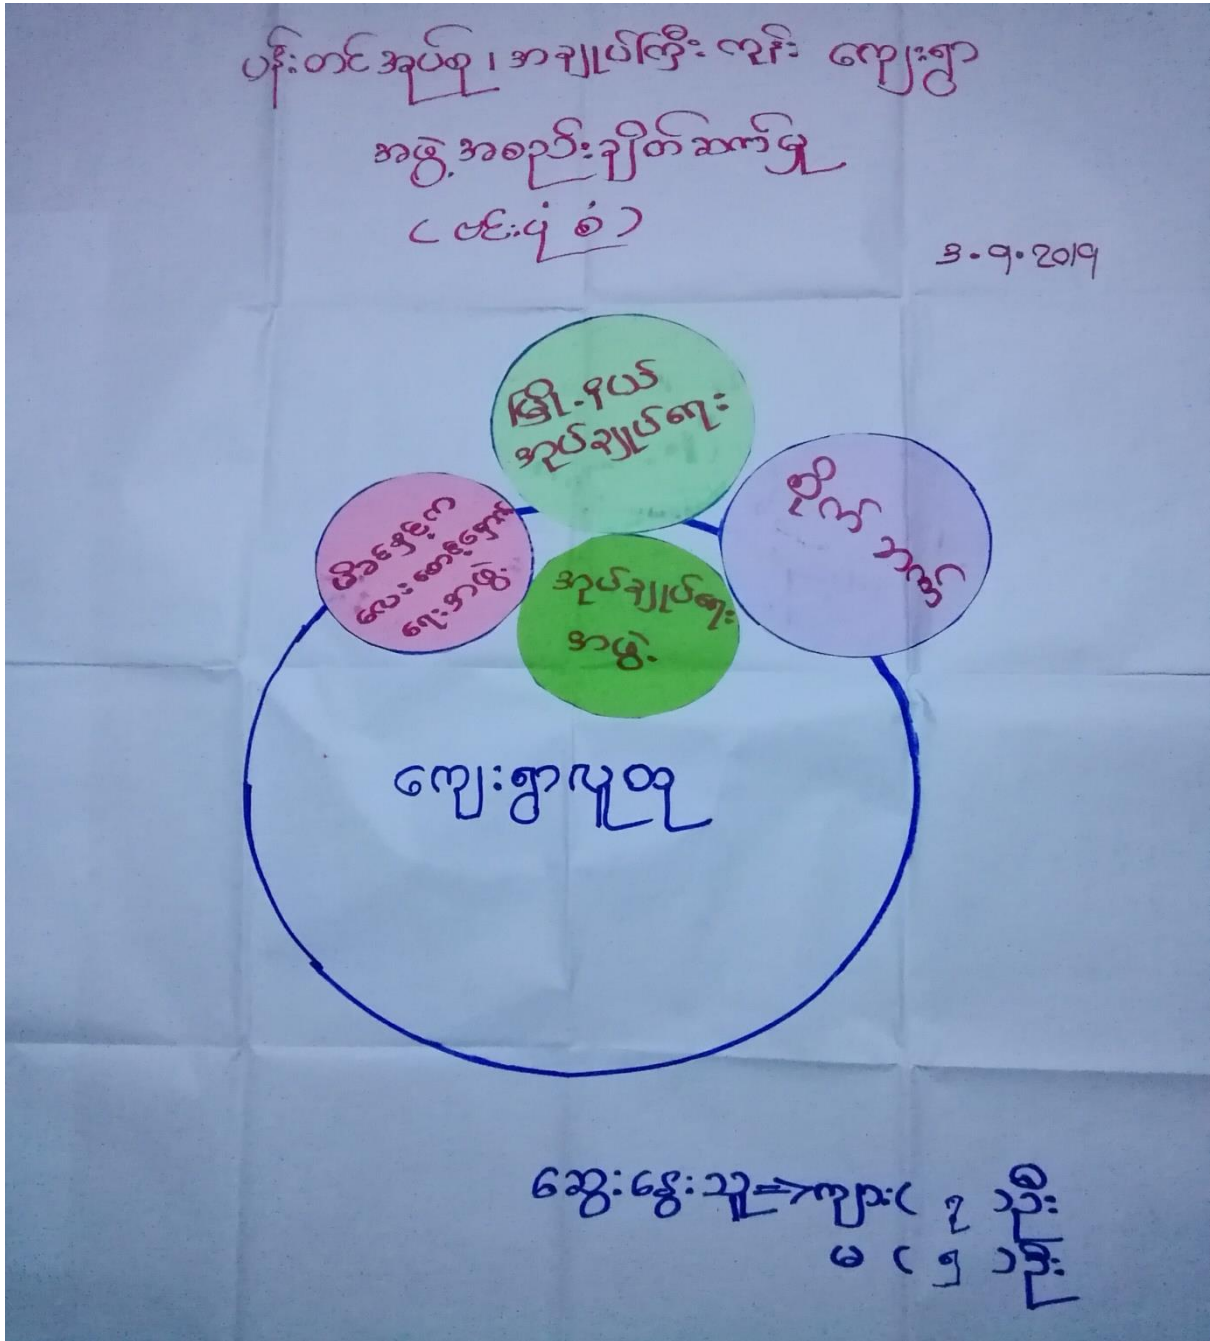 ပန်းတင်အုပ်စု၊ အချုပ်ကြီးကုန်း ကျေးရွာ
အဖွဲ့အစည်းချိတ်ဆက်မှု
( ဗင်းပုံစံ )
3.9.2019
မြို့နယ်
အုပ်ချုပ်ရေး
မိခင်နှင့်က
လေးစောင့်ရှောက်
ရေးအဖွဲ့
အုပ်ချုပ်ရေး
အဖွဲ့
ကျေးရွာလူထု
ဆွေးနွေးသူ=>ကျား( ၇ )ဦး
မ ( ၅ )ဦး